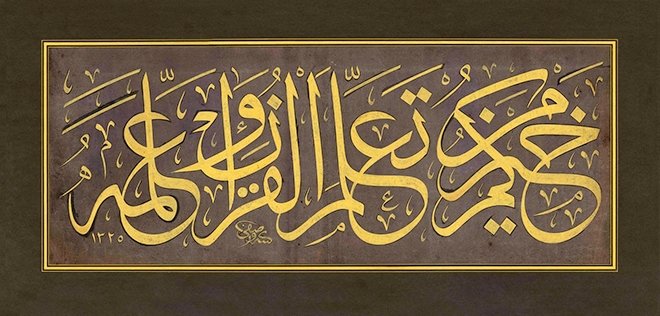 خيركم من تعلم القرآن وعلمه
١٢٢٥